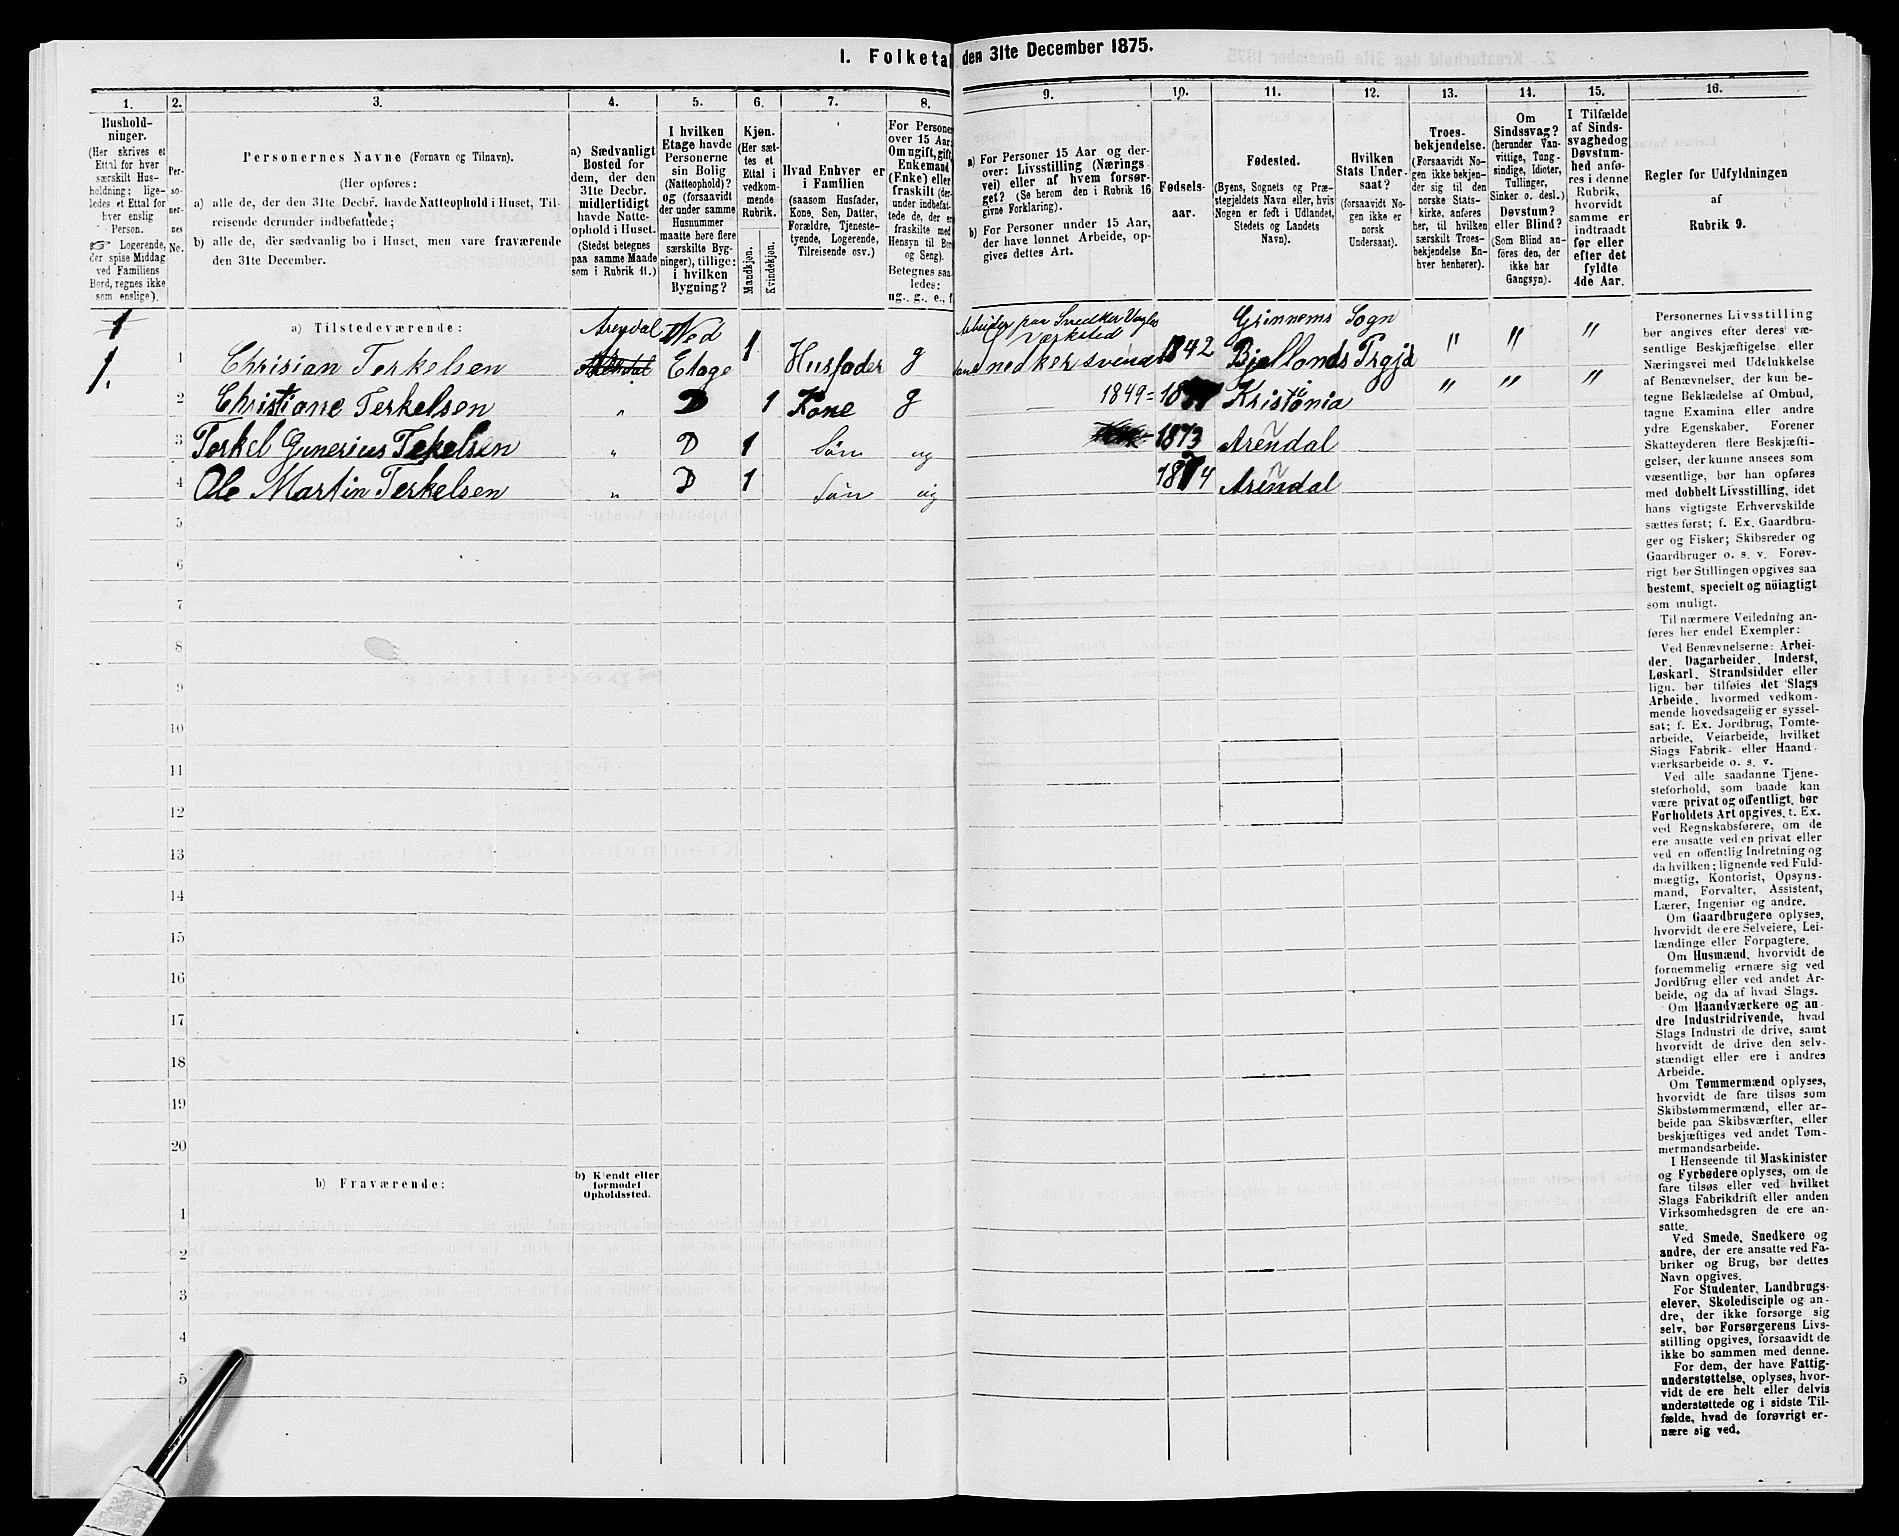 I. Folketal den 31te December 1875.
1.
2.
3.
4.
5.
6.
7.
8.
9.
10.
11.
12.
13.
14.
15.
16.
Hushold-
ninger.
(Her skrives et
Ettal for hver
særskilt Hus-
holdning; lige-
ledes et Ettal for
hver enslig
Person.
☞ Logerende,
der spise Middag
ved Familiens
Bord, regnes ikke
som enslige).
Per-
so-
ner-
nes
No.
Personernes Navne (Fornavn og Tilnavn).
(Her opføres:
a) alle de, der den 31te Decbr. havde Natteophold i Huset, Til-
reisende derunder indbefattede;
b) alle de, der sædvanlig bo i Huset, men vare fraværende
den 31te December.
a) Sædvanligt
Bosted for
dem, der den
31te Decbr.
midlertidigt
havde Natte-
ophold i Huset.
(Stedet betegnes
paa samme Maade
som i Rubrik 11.)
I hvilken
Etage havde
Personerne
sin Bolig
(Natteophold)?
og (forsaavidt
der under samme
Husnummer
maatte høre flere
særskilte Byg-
ninger), tillige:
i hvilken
Bygning?
Kjøn.
(Her sæt-
tes et
Ettal i
vedkom-
mende
Rubrik.
Mandkjøn.
Kvindekjøn.
Hvad Enhver er
i Familien
(saasom Husfader,
Kone, Søn, Datter,
Forældre, Tjeneste-
tyende, Logerende,
Tilreisende osv.)
For Personer
over 15 Aar:
Om ugift, gift,
Enkemand
(Enke) eller
fraskilt (der-
under indbefat-
tede de, der er
fraskilte med
Hensyn til Bord
og Seng).
Betegnes saa-
ledes:
ug., g., e., f.
a) For Personer 15 Aar og der-
over: Livsstilling (Nærings-
vei) eller af hvem forsør-
get? (Se herom den i Rubrik 16
givne Forklaring).
b) For Personer under 15 Aar,
der have lønnet Arbeide, op-
gives dettes Art.
Fødsels-
aar.
Fødested.
(Byens, Sognets og Præ-
stegjeldets Navn eller, hvis
Nogen er født i Udlandet,
Stedets og Landets
Navn).
Hvilken
Stats Under-
saat?
(forsaavidt No-
gen ikke er
norsk
Undersaat).
Troes-
bekjendelse.
(Forsaavidt No-
gen ikke bekjen-
der sig til den
norske Stats-
kirke, anføres
her, til hvilken
særskilt Troes-
bekjendelse En-
hver henhører).
Om
Sindssvag?
(herunder Van-
vittige, Tung-
sindige, Idioter,
Tullinger,
Sinker o. desl.)
Døvstum?
eller Blind?
(Som Blind an-
føres den, der
ikke har
Gangsyn).
I Tilfælde
af Sinds-
svaghed og
Døvstum-
hed anfø-
res i denne
Rubrik,
hvorvidt
samme er
indtraadt
før eller
efter det
fyldte
4de Aar.
Regler for Udfyldningen
af
Rubrik 9.
a) Tilstedeværende:
1 Arendal Ned Arbeider paa Snedker Værksted Sogn
1. 1 Chrisian Terkelsen Arendal Etage 1 Husfader g snedkersvend 1842 Bjellands Prgjd " " "
2 Christiane Terkelsen " D 1 Kone g 1849 = Kristania " " "
3 Terkel Gunerius Tekelsen " D 1 Søn ug 1873 Arendal
4 Ole Martin Terkelsen " D 1 Søn ug 1874 Arendal
5
6
7
8
9
10
11
12
13
14
15
16
17
18
19
20
b) Fraværende:
b) Kjendt eller
formodet
Opholdssted.
1
2
3
4
5
Personernes Livsstilling
bør angives efter deres væ-
sentlige Beskjæftigelse eller
Næringsvei med Udelukkelse
af Benævnelser, der kun be-
tegne Beklædelse af Ombud,
tagne Examina eller andre
ydre Egenskaber. Forener
Skatteyderen flere Beskjæfti-
gelser, der kunne ansees som
væsentlige, bør han opføres
med dobbelt Livsstilling, idet
hans vigtigste Erhvervskilde
sættes først; f. Ex. Gaardbru-
ger og Fisker; Skibsreder og
Gaardbruger o. s. v. Forøv-
rigt bør Stillingen opgives saa
bestemt, specielt og nöiagtigt
som muligt.
Til nærmere Veiledning an-
føres her endel Exempler:
Ved Benævnelserne: Arbei-
der, Dagarbeider, Inderst,
Løskarl, Strandsidder eller
lign. bør tilføies det Slags
Arbeide, hvormed vedkom-
mende hovedsagelig er syssel-
sat; f. Ex. Jordbrug, Tomte-
arbeide, Veiarbeide, hvilket
Slags Fabrik- eller Haand-
værksarbeide o. s. v.
Ved alle saadanne Tjene-
steforhold, som baade kan
være privat og offentligt, bør
Forholdets Art opgives, t. Ex.
ved Regnskabsførere, om de
ere ansatte ved en privat eller
ved en offentlig Indretning og
da hvilken; lignende ved Fuld-
mægtig, Kontorist, Opsyns-
mand, Forvalter, Assistent,
Lærer, Ingeniør og andre.
Om Gaardbrugere oplyses,
hvorvidt de ere Selveiere, Lei-
lændinge eller Forpagtere.
Om Husmænd, hvorvidt de
fornemmelig ernære sig ved
Jordbrug eller ved andet Ar-
beide, og da af hvad Slags.
Om Haandværkere og an-
dre Industridrivende, hvad
Slags Industri de drive, samt
hvorvidt de drive den selv-
stændigt eller ere i andres
Arbeide.
Om Tømmermænd oplyses,
hvorvidt de fare tilsøs som
Skibstømmermænd, eller ar-
beide paa Skibsværfter, eller
beskjæftiges ved andet Tøm-
mermandsarbeide.
I Henseende til Maskinister
og Fyrbødere oplyses, om de
fare tilsøs eller ved hvilket
Slags Fabrikdrift eller anden
Virksomhedsgren de ere an-
satte.
Ved Smede, Snedkere og
andre, der ere ansatte ved Fa-
briker og Brug, bør dettes
Navn opgives.
For Studenter, Landbrugs-
elever, Skoledisciple og an-
dre, der ikke forsørge sig
selv, bør Forsørgerens Livs-
stilling opgives, forsaavidt de
ikke bo sammen med denne.
For dem, der have Fattig-
understøttelse, oplyses, hvor-
vidt de ere helt eller delvis
understøttede og i sidste Til-
fælde, hvad de forøvrigt er-
nære sig ved.